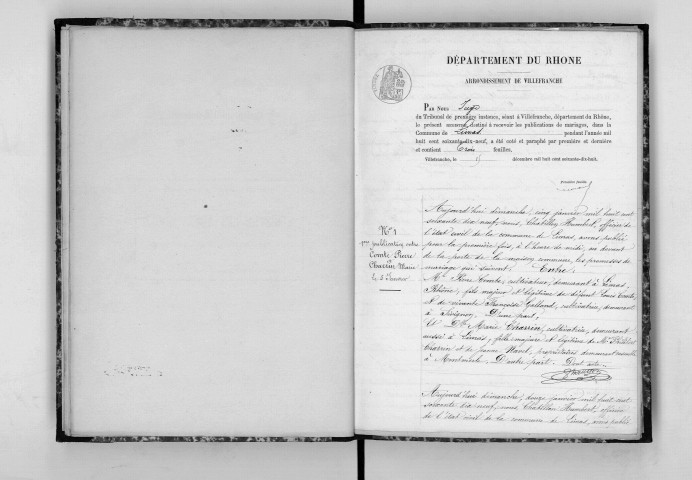 DÉPARTEMENT DU RHONE
ARRONDISSEMENT DE VILLEFRANCHE
PAR NOUS Juge
du Tribunal de première instance, séant à Villefranche, département du Rhône,
le présent destiné à recevoir les publications de mariages, dans la
Commune de Limas pendant l'année mil
huit cent soixante-dix-neuf, a été coté et paraphé par première et dernière
et contient trois feuilles.
Villefranche, le décembre mil huit cent soixante-dix-huit.
Première feuille
N° 1
1ère publication entre
Comte Pierre
Charrin Marie
le 5 Janvier
Aujourd'hui dimanche, cinq janvier mil huit cent
soixante dix neuf, nous, Chatillon Humbert, officier de
l'état civil de la commune de Limas, avons publié
pour la première fois, à l'heure de midi, au devant
de la porte de la maison commune, les promesses de
mariage qui suivent. Entre
Mr Pierre Comte, cultivateur, demeurant à Limas,
Rhône, fils majeur et légitime de défunt Louis Comte,
et de vivante Françoise Galland, cultivatrice, demeurant
à D'une part;
Et Dlle Marie Charrin, cultivatrice, demeurant
aussi à Limas, fille majeure et légitime de Mr
Charrin et de Jeanne propriétaires demeurant ensemble
à D'autre part. Dont acte.
Aujourd'hui dimanche, douze janvier mil huit cent
soixante dix neuf, nous Chatillon Humbert, officier
de l'état civil de la commune de Limas, avons publié